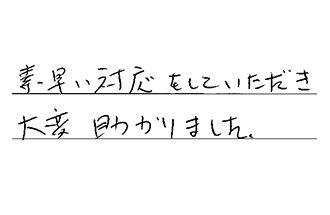 素早い対応をしていただき
大変助かりました。